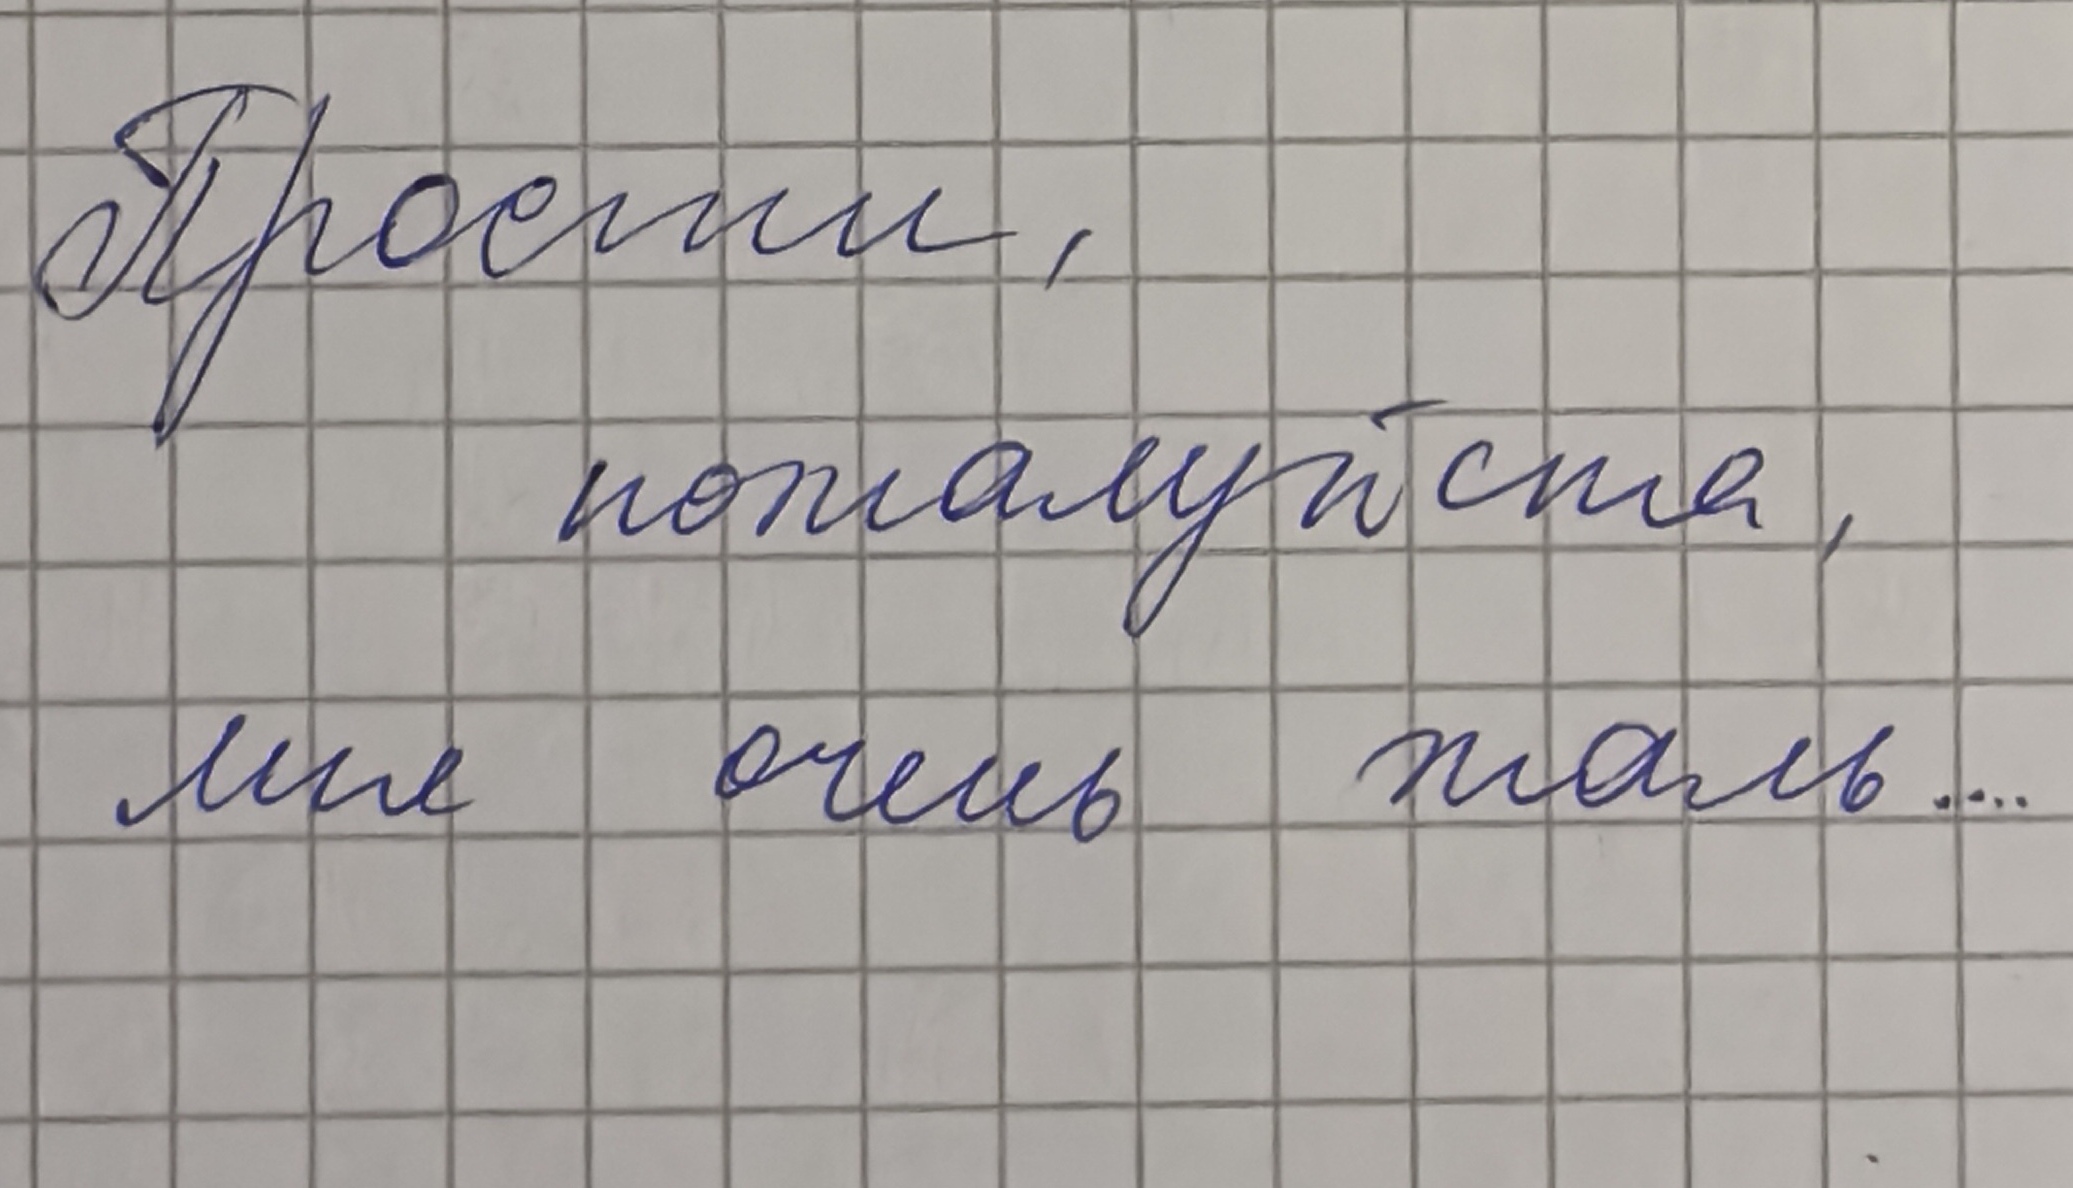 Прости,
пожалуйста,
мне очень жаль....